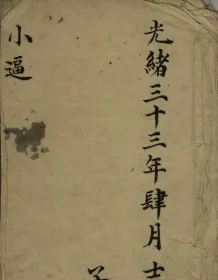 光緒三十三年肆月
小逼